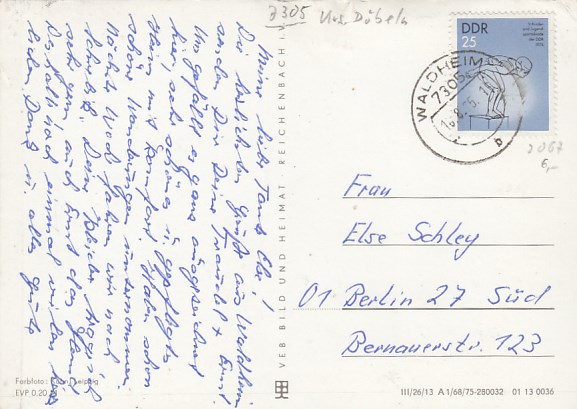 7305 Krs. Döbeln
DDR
25
V. Kinder-
und Jugend-
spartakiade
der DDR
1975
WALDHEIM
7305
b
2067
6,-
Meine liebe Tante Else!
Die herzlichsten Grüße aus Waldheim
senden Dir Deine Traudel + Ernst.
Uns gefällt es ganz ausgezeichnet
hier, sehr schönes u. gepflegtes
Heim mit Komfort. Haben schon
schöne Wanderungen unternommen.
Nächste Woche fahren wir nach
sehr gern auch Ernst das
Deshalb noch einmal vielen
lieben Dank u. alles Gute
VEB BILD UND HEIMAT REICHENBACH i. V.
Frau
Else Schley
01 Berlin 27 Süd
Bernauerstr. 123
Farbfoto: Kühn, Leipzig
EVP 0,20
III/26/13 A 1/68/75-280032 01 13 0036